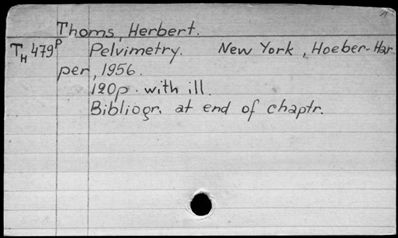 Thoms, Herbert.
TH 479P Pelvimetry. New York, Hoeber-Har
per, 1956.
120p. with ill.
Bibliogr. at end of chaptr.